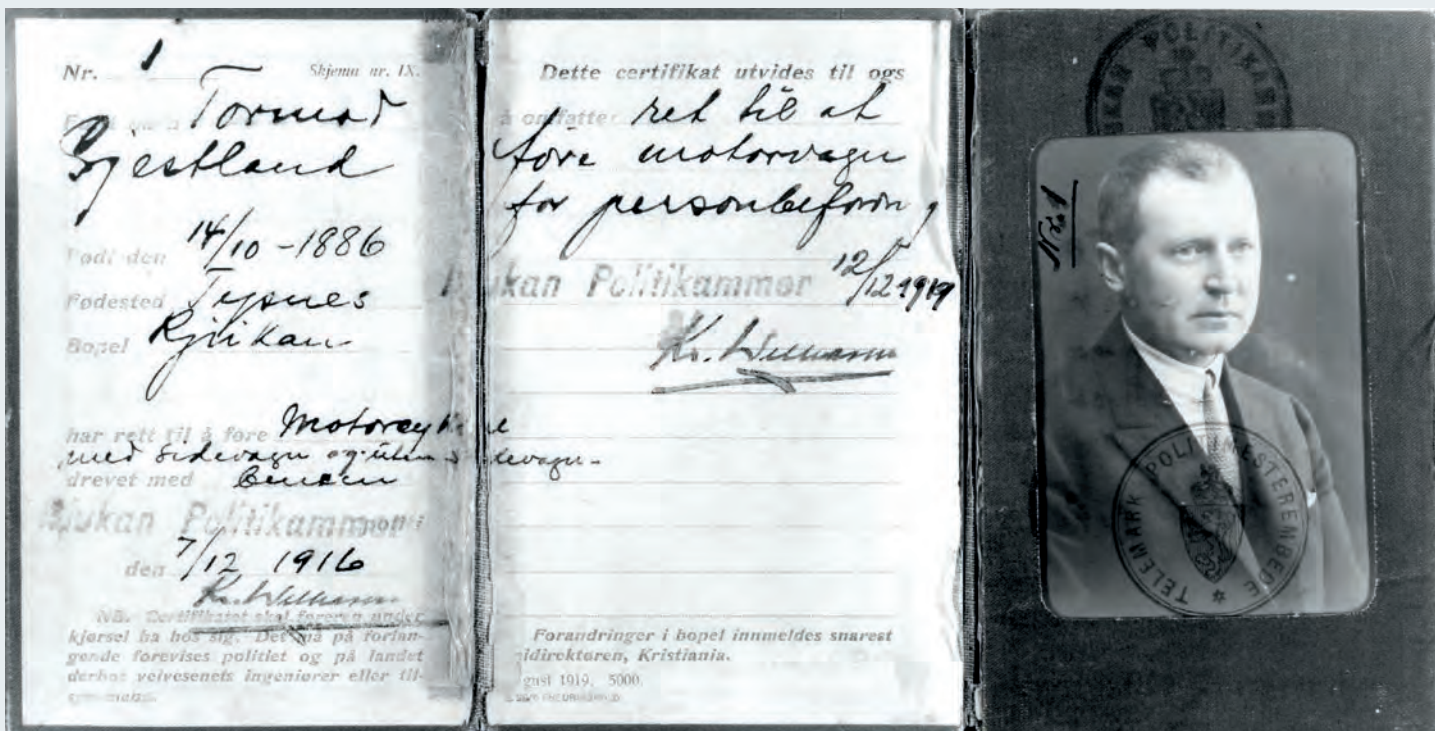 Nr. 1 Skjema nr. IX.
Tormod
Gjestland
Født den 14/10-1886
Fødested Tysnes
Bopel Rjukan
har rett til å føre Motorcykle
med sidevogn og uten sidevogn-
drevet med Bensin
Rjukan Politikammer
den 7/12 1916
Kr. Willumsen
NB. Certifikatet skal føreren under
kjørsel ha hos sig. Det må på forlan-
gende forevises politiet og på landet
derhos veivesenets ingeniører eller til-
Dette certifikat utvides til ogs
å omfatter ret til at
føre motorvogn
for personbefordring
Rjukan Politikammer 12/12 1919
Forandringer i bopel innmeldes snarest
idirektøren, Kristiania.
gust 1919. 5000.
RJUKAN POLITIKAMMER
No. 1
TELEMARK POLITIMESTEREMBEDE